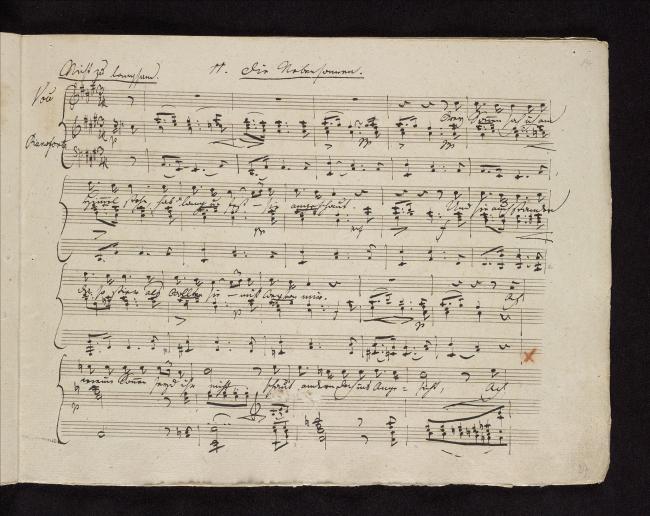 Nicht zu langsam. 11. Die Nebensonnen.
Voce
Pianoforte
Drey Sonnen sah ich am
Himmel stehn, hab' lang u. fest sie angeschaut. Und sie auch standen
da so stier als wollten sie nicht weg von mir. Ach
meine Sonnen seyd ihr nicht, schaut andern doch ins Angesicht, Ach